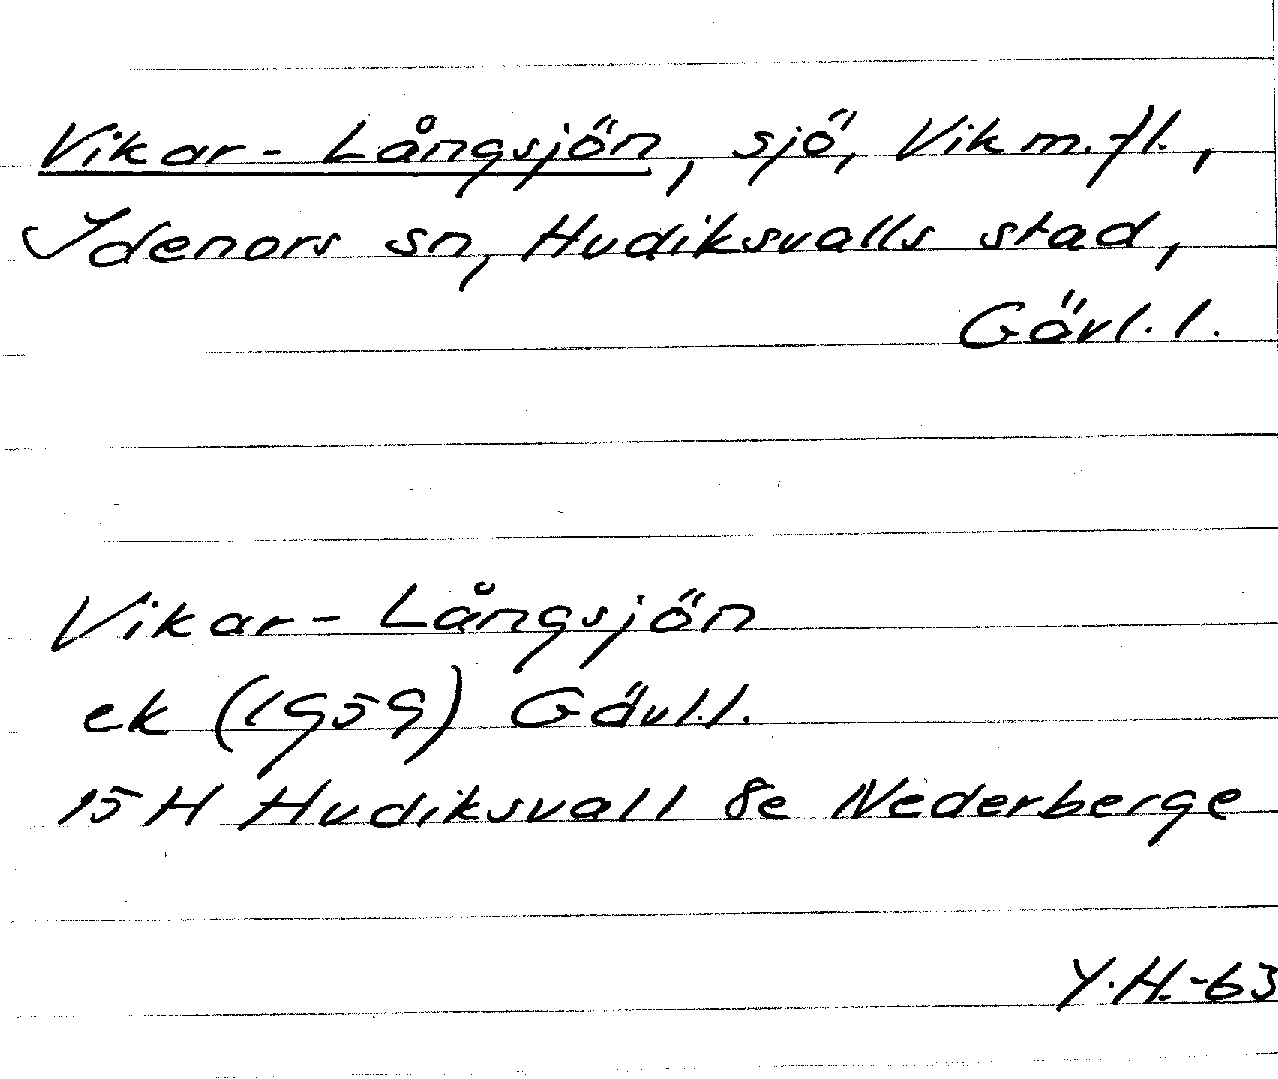 Vikar-Långsjön, sjö, Vik m.fl.,
Idenors sn, Hudiksvalls stad,
Gävl.l.
Vikar-Långsjön
ek (1959) Gävl.l.
15H Hudiksvall 8e Nederberge
Y.H.-63